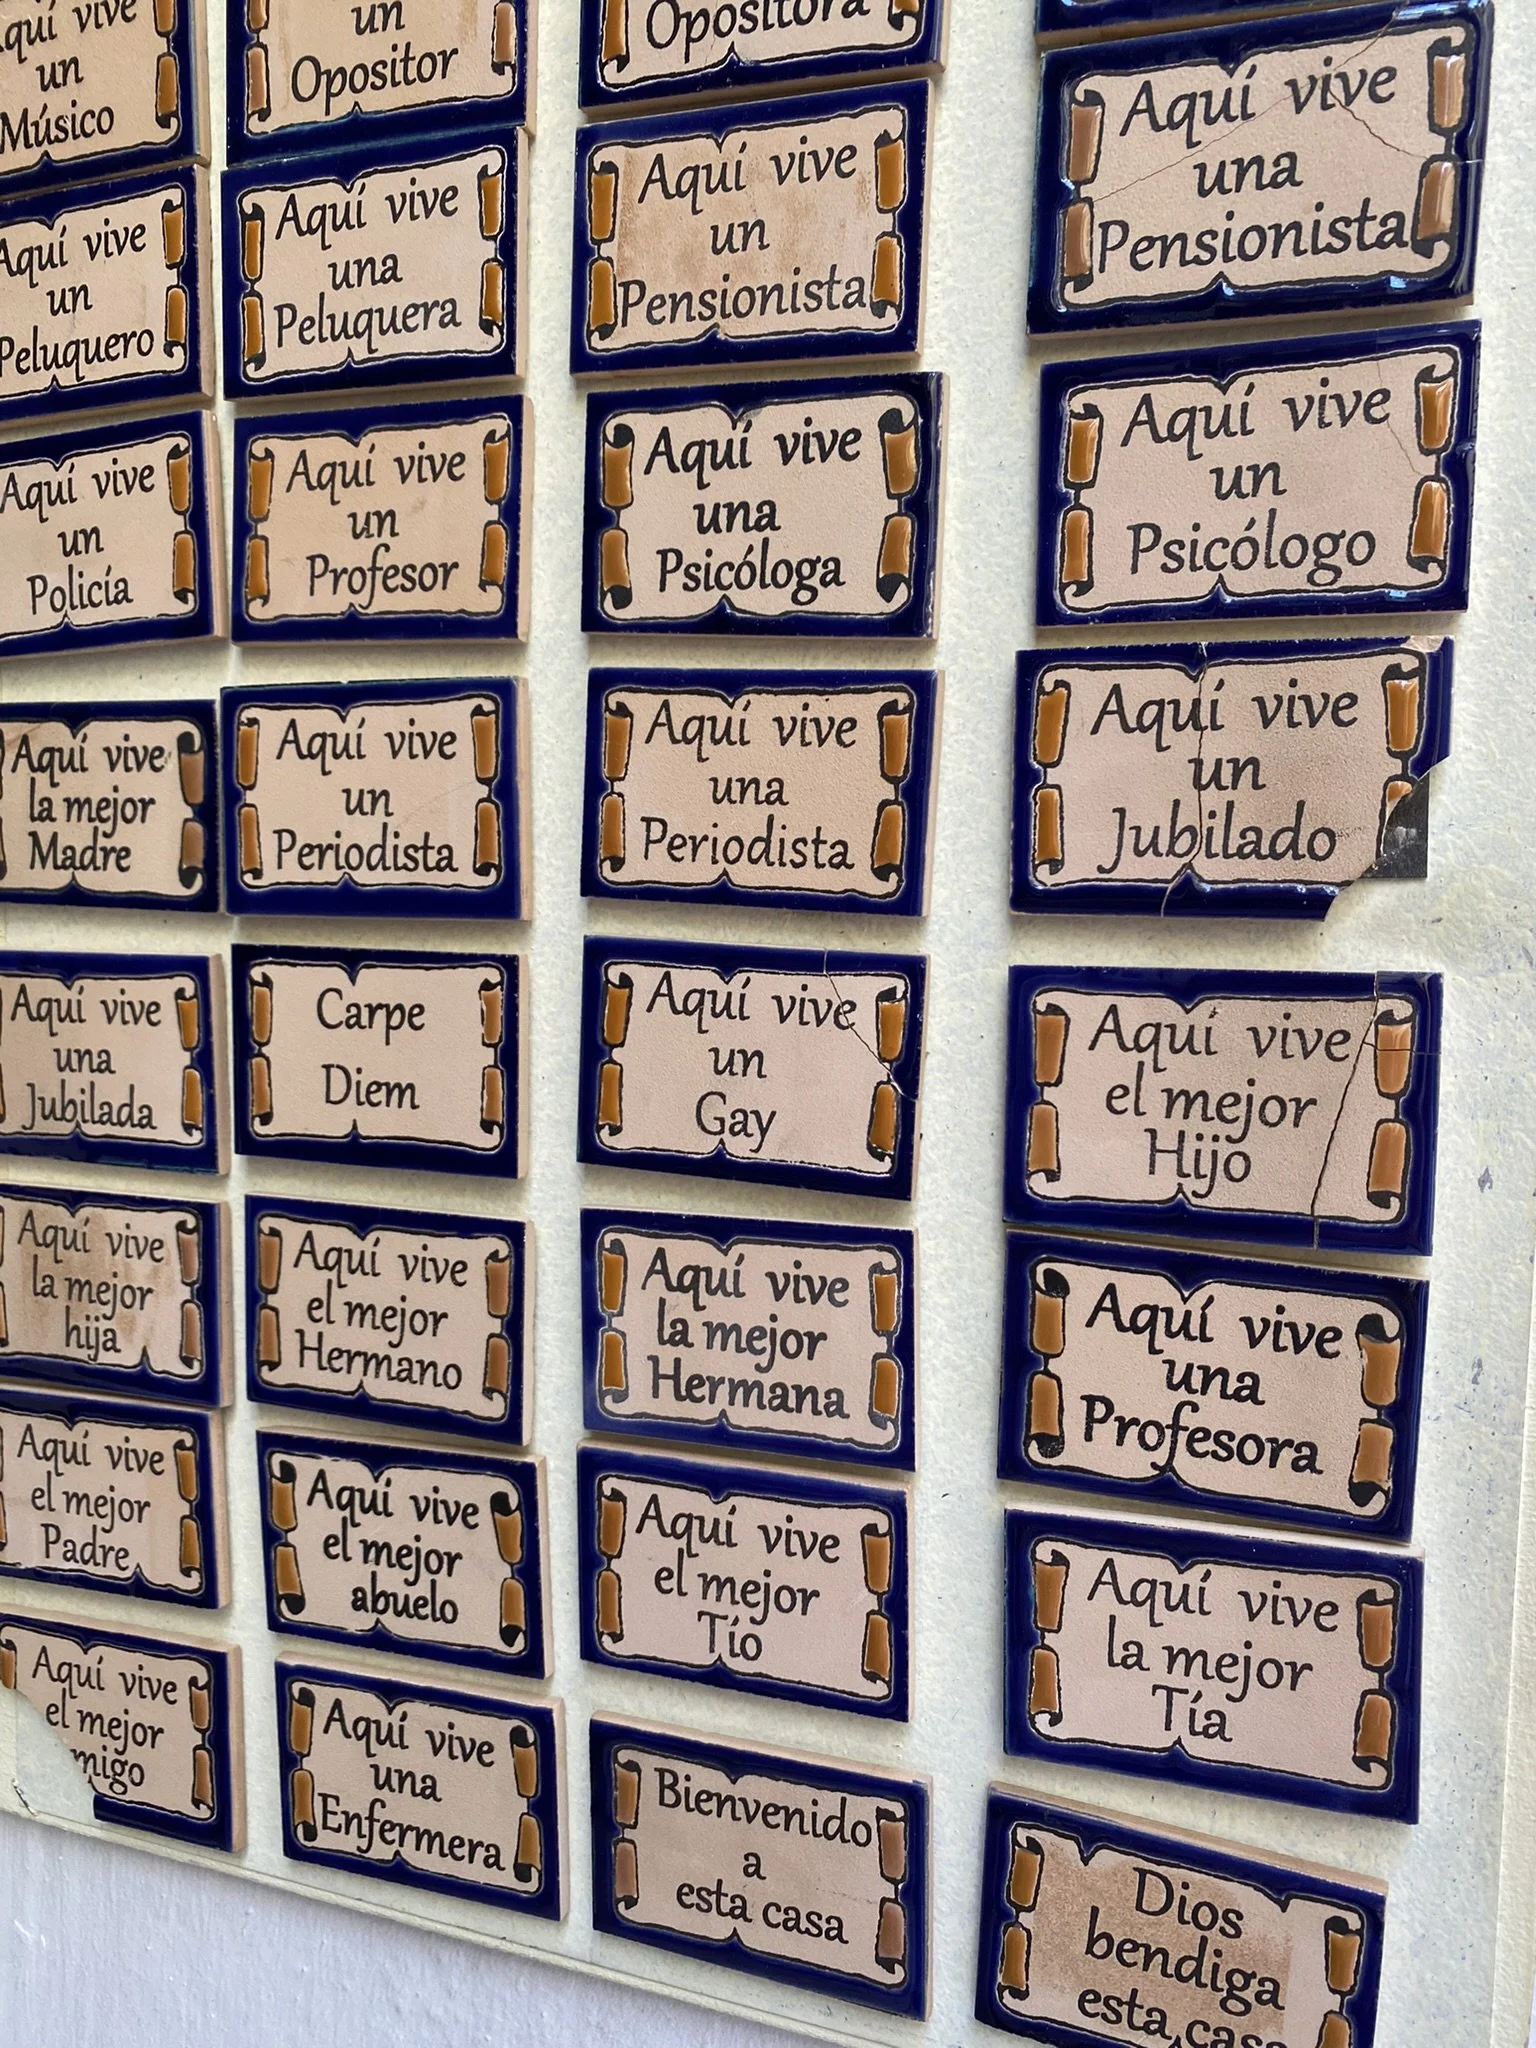 Aquí vive
un
Músico
un
Opositor
Opositora
Aquí vive
una
Pensionista
Aquí vive
un
Peluquero
Aquí vive
una
Peluquera
Aquí vive
un
Pensionista
Aquí vive
un
Psicólogo
Aquí vive
un
Policía
Aquí vive
un
Profesor
Aquí vive
una
Psicóloga
Aquí vive
un
Jubilado
Aquí vive
la mejor
Madre
Aquí vive
un
Periodista
Aquí vive
una
Periodista
Aquí vive
el mejor
Hijo
Aquí vive
una
Jubilada
Carpe
Diem
Aquí vive
un
Gay
Aquí vive
una
Profesora
Aquí vive
la mejor
hija
Aquí vive
el mejor
Hermano
Aquí vive
la mejor
Hermana
Aquí vive
la mejor
Tía
Aquí vive
el mejor
Padre
Aquí vive
el mejor
abuelo
Aquí vive
el mejor
Tío
Dios
bendiga
esta casa
Aquí vive
el mejor
migo
Aquí vive
una
Enfermera
Bienvenido
a
esta casa